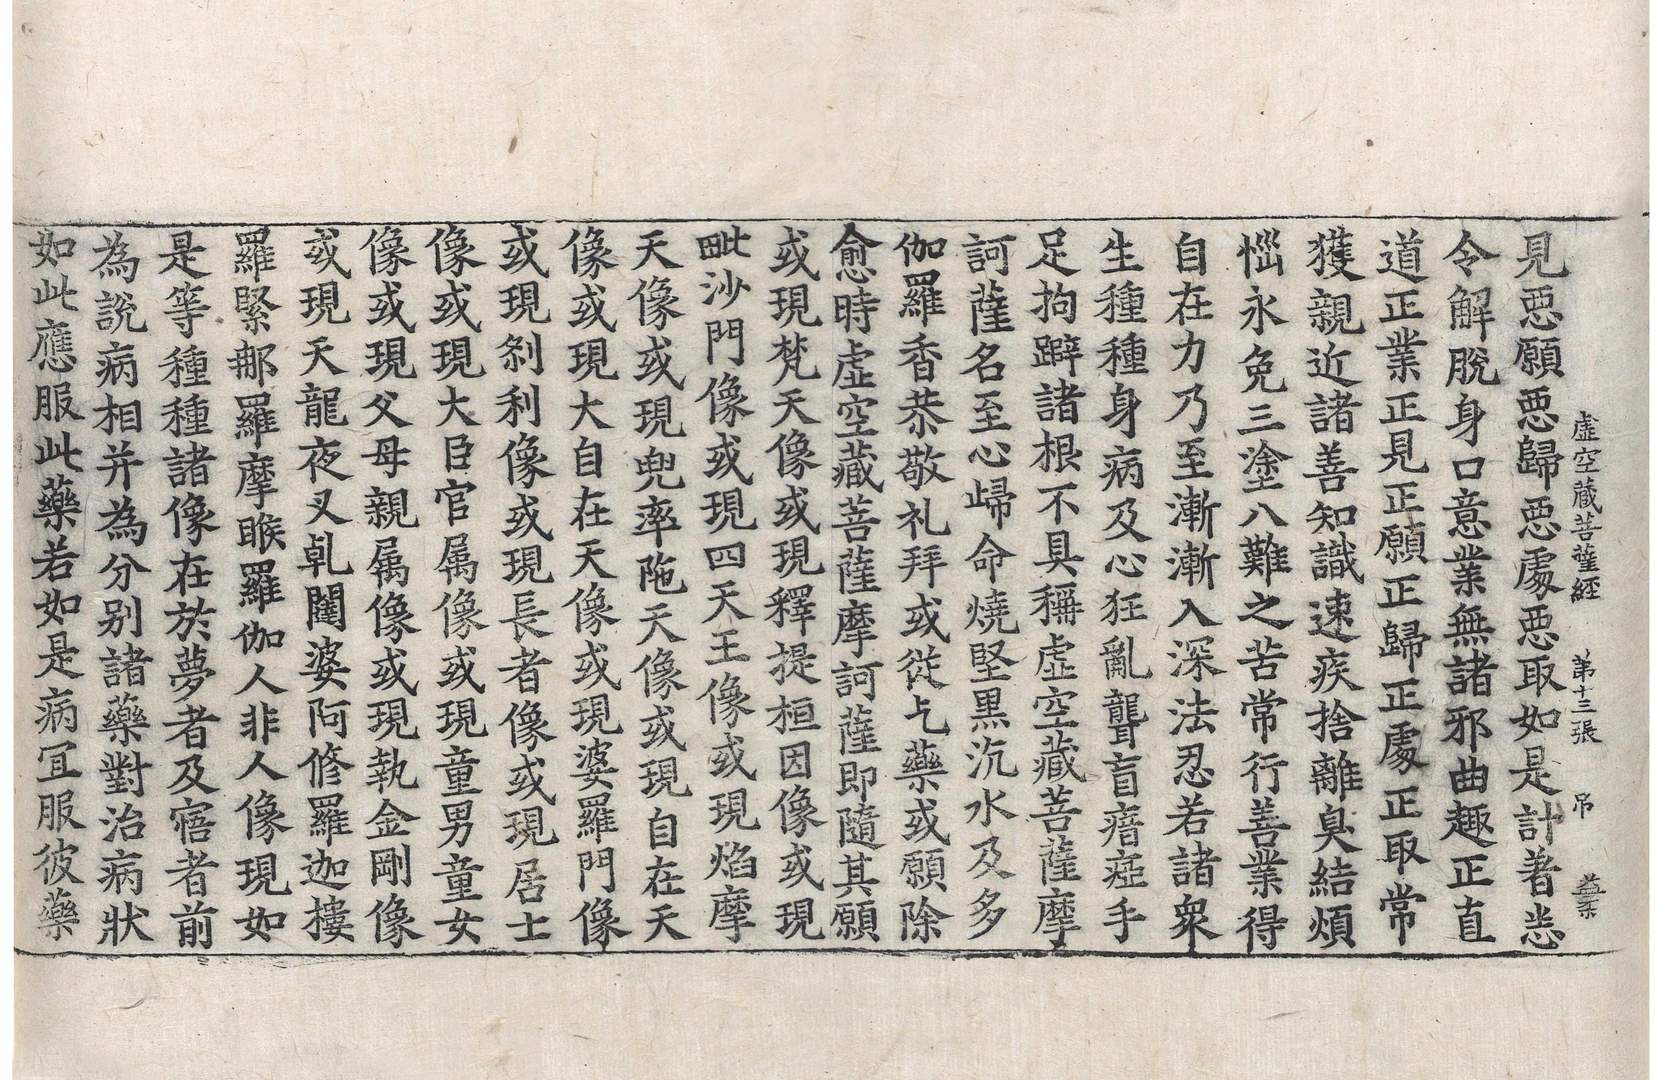 虛空藏菩薩經 第十三張 吊
見惡願惡歸惡處惡取如是計著悉
令解脫身口意業無諸邪曲趣正直
道正業正見正願正歸正處正取常
獲親近諸善知識速疾捨離臭結煩
惱永免三塗八難之苦常行善業得
自在力乃至漸漸入深法忍若諸衆
生種種身病及心狂亂聾盲瘖瘂手
足拘躃諸根不具稱虛空藏菩薩摩
訶薩名至心歸命燒堅黑沉水及多
伽羅香恭敬礼拜或從乞藥或願除
愈時虛空藏菩薩摩訶薩即隨其願
或現梵天像或現釋提桓因像或現
毗沙門像或現四天王像或現焰摩
天像或現兜率陁天像或現自在天
像或現大自在天像或現婆羅門像
或現剎利像或現長者像或現居士
像或現大臣官属像或現童男童女
像或現父母親属像或現執金剛像
或現天龍夜叉乹闥婆阿修羅迦樓
羅緊那羅摩睺羅伽人非人像現如
是等種種諸像在於夢者及寤者前
為說病相并為分別諸藥對治病狀
如此應服此藥若如是病冝服彼藥